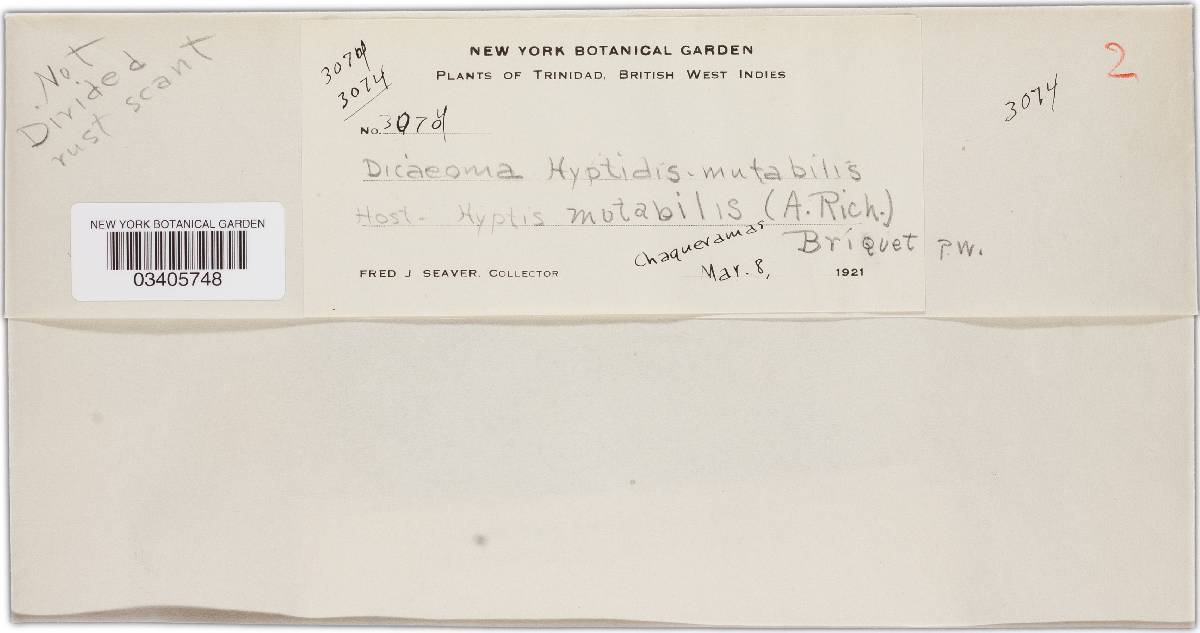 Not
Divided
rust scant
NEW YORK BOTANICAL GARDEN
03405748
3074
3074
NEW YORK BOTANICAL GARDEN
PLANTS OF TRINIDAD, BRITISH WEST INDIES
No. 3074
Dicaeoma Hyptidis-mutabilis
Host- Hyptis mutabilis (A. Rich.)
Briquet P.W.
Chaqueramas
Mar. 8, 1921
FRED J SEAVER, COLLECTOR
3074
2